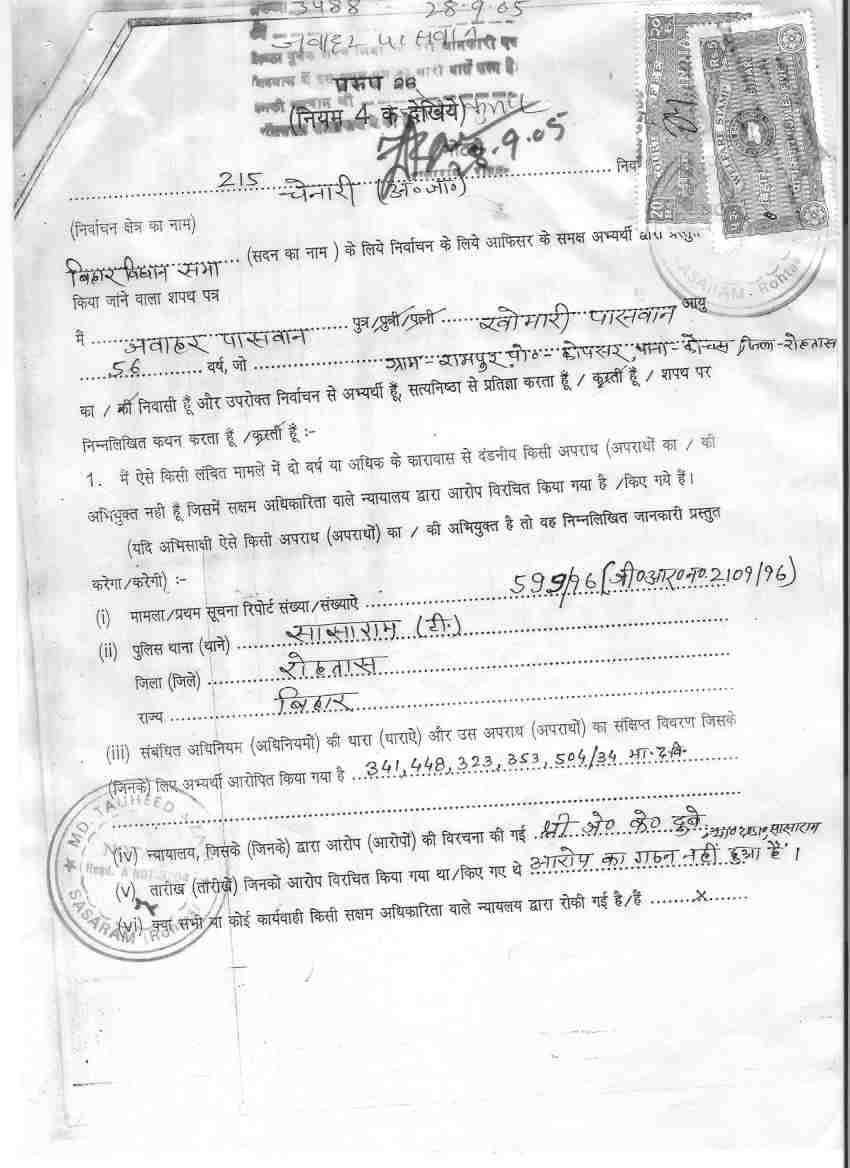 3488 28-9-05
जवाहर पासवान
प्ररुप 26
(नियम 4 क देखिये)
28.9.05
215 चेनारी (अ०जा०)
(निर्वाचन क्षेत्र का नाम)
बिहार विधान सभा (सदन का नाम ) के लिये निर्वाचन के लिये आफिसर के समक्ष अभ्यर्थी द्वारा प्रस्तुत
किया जाने वाला शपथ पत्र
मैं जवाहर पासवान पुत्र/पुत्री/पत्नी खोमारी पासवान आयु
56 वर्ष, जो ग्राम-रामपुर पो०-कोपसर, थाना-कोंचस, जिला-रोहतास
का / की निवासी हूँ और उपरोक्त निर्वाचन से अभ्यर्थी हूँ, सत्यनिष्ठा से प्रतिज्ञा करता हूँ / करती हूँ / शपथ पर
निम्नलिखित कथन करता हूँ /करती हूँ :-
1. मैं ऐसे किसी लंबित मामले में दो वर्ष या अधिक के कारावास से दंडनीय किसी अपराध (अपराधों का / की
अभियुक्त नही हूँ जिसमें सक्षम अधिकारिता वाले न्यायालय द्वारा आरोप विरचित किया गया है /किए गये हैं।
(यदि अभिसाक्षी ऐसे किसी अपराध (अपराधों) का / की अभियुक्त है तो वह निम्नलिखित जानकारी प्रस्तुत
करेगा/करेगी) :-
(i) मामला/प्रथम सूचना रिपोर्ट संख्या/संख्याऐ 599/96 (जी०आर०न०2109/96)
(ii) पुलिस थाना (थाने) सासाराम (टी.)
जिला (जिले) रोहतास
राज्य बिहार
(iii) संबंधित अधिनियम (अधिनियमों) की धारा (धाराऐ) और उस अपराध (अपराधों) का संक्षिप्त विवरण जिसके
(जिनके) लिए अभ्यर्थी आरोपित किया गया है 341,448,323,353,504/34 भा.द.वि.
(iv) न्यायालय, जिसके (जिनके) द्वारा आरोप (आरोपों) की विरचना की गई श्री जे० के० दुबे, सासाराम
(v) तारीख (तारीखें) जिनको आरोप विरचित किया गया था/किए गए थे आरोप का गठन नहीं हुआ है।
(vi) क्या सभी या कोई कार्यवाही किसी सक्षम अधिकारिता वाले न्यायलय द्वारा रोकी गई है/हैं x
MD. TAUHEED
SASARAM (Rohtas)
SASARAM Rohtas
WELFARE STAMP